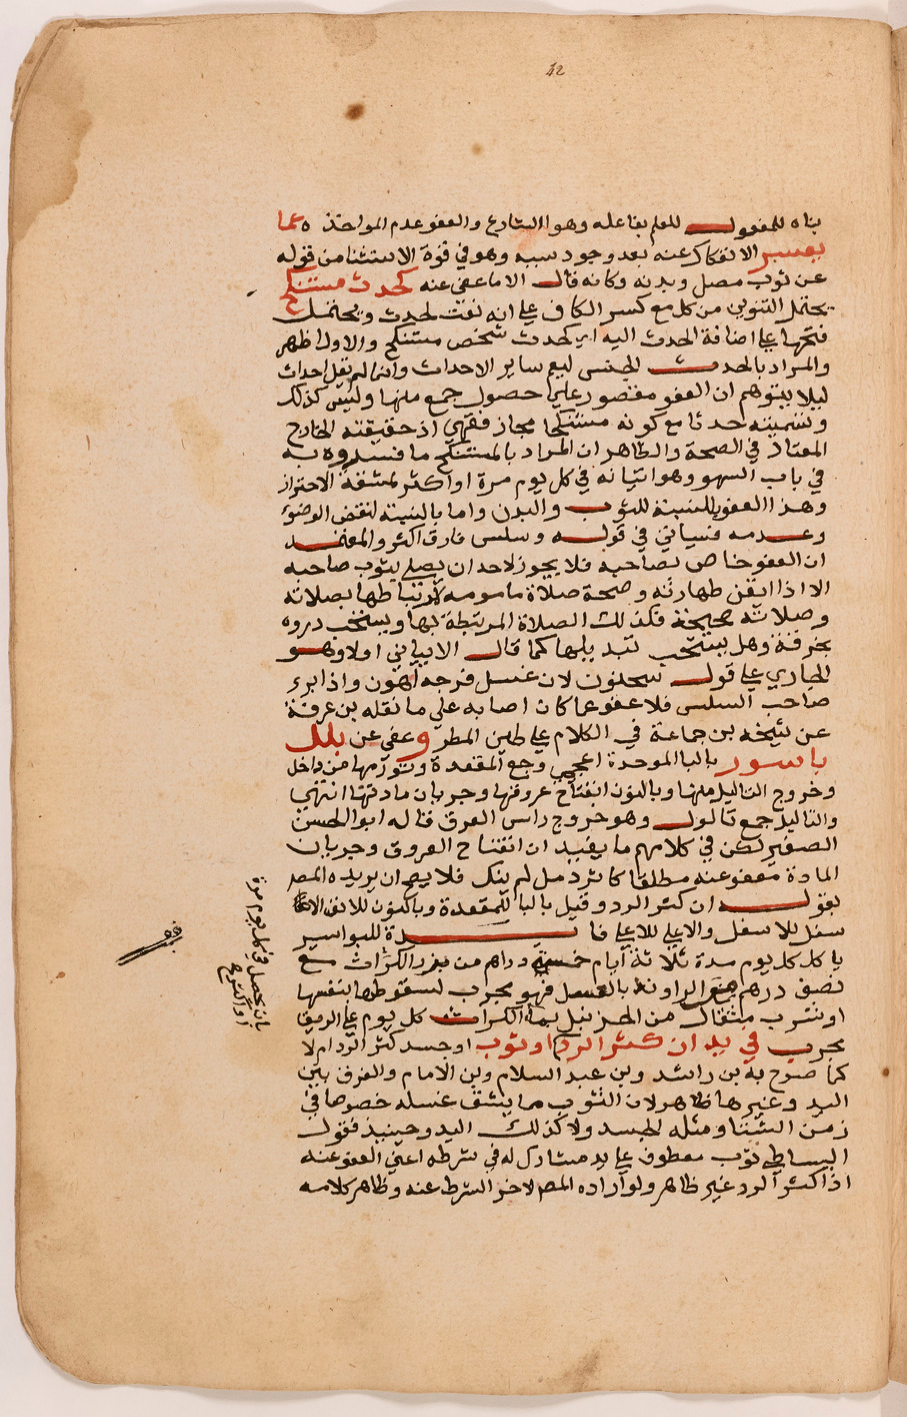 42
بناه للمفعول للعلم بفاعله وهو الشارع والعفو عدم المواخذه عما
يعسر الانفكاك عنه بعد وجود سببه وهو في قوة الاستثنا من قوله
عن ثوب مصل وبدنه وكانه قال الا ما عفي عنه كحدث مستنكح
يحتمل التنوين من كل مع كسر الكاف علي انه نعت لحدث ويحتمل
فتحها علي اضافة الحدث اليه اي كحدث شخص مستنكح والاول اظهر
والمراد بالحدث الجنس ليعم ساير الاحداث وانما لم يقل احداث
ليلا يتوهم ان العفو مقصور علي حصول جمع منها وليس كذلك
وتسميته حدثا مع كونه مستنكحا مجاز فقهي اذ حقيقته الخارج
المعتاد في الصحة والظاهر ان المراد بالمستنكح ما فسروه به
في باب السهو وهو اتيانه في كل يوم مرة او اكثر لمشقة الاحتراز
وهذا العفو بالنسبة للثوب والبدن واما بالنسبة لنقض الوضوء
وعدمه فسياتي في قوله وسلس فارق اكثر والمعتمد
ان العفو خاص بصاحبه فلا يجوز لاحد ان يصلي بثوب صاحبه
الا اذا ايقن طهارته وصحة صلاة مامومه لارتباطها بصلاته
وصلاته صحيحة فكذلك الصلاة المرتبطة بها ويستحب دروه
بخرقة وهل يستحب تبديلها كما قال الابياني اولا وهو
الجاري علي قول سحنون لان غسل فرجه اهون واذا برء
صاحب السلس فلا عفو عما كان اصابه علي ما نقله بن عرفة
عن شيخه بن جماعة في الكلام علي طين المطر وعفي عن بلل
باسور بالبا الموحدة اعجمي وجع المقعدة وتورمها من داخل
وخروج الثاليل منها وبالنون انفتاح عروقها وجريان مادتها انتهي
والثاليل جمع ثالول وهو خروج راس العرق قاله ابو الحسن
الصغير لكن في كلامهم ما يفيد ان انفتاح العروق وجريان
المادة معفو عنه مطلقا كاثر دمل لم ينك فلا يصح ان يريده المص
بقوله ان كثر الرد وقيل بالبا للمقعدة وبالنون للانف
سفل للاسفل والاعلي للاعلي فايدة للبواسير
ياكل كل يوم مدة ثلاثة ايام خمسة دراهم من بزر الكراث مع
نصف درهم من الراوند بالعسل فهو مجرب لسقوطها بنفسها
او شرب مثقال من الحزنبل بماء الكراث كل يوم علي الريق
مجرب في يد ان كثر الرد او ثوب او جسد كثر الرد ام لا
كما صرح به بن راشد وبن عبد السلام وبن الامام والفرق بين
اليد وغيرها ظاهر لان الثوب مما يشق غسله خصوصا في
زمن الشتا ومثله الجسد ولا كذلك اليد وحينيذ فقول
البساطي ثوب معطوف علي يد مشارك له في شرطه اعني العفو عنه
اذا كثر الرد غير ظاهر ولو اراده المص لاخر الشرط عنه وظاهر كلامه
بان يحصل في كل يوم مرة
او اكثر